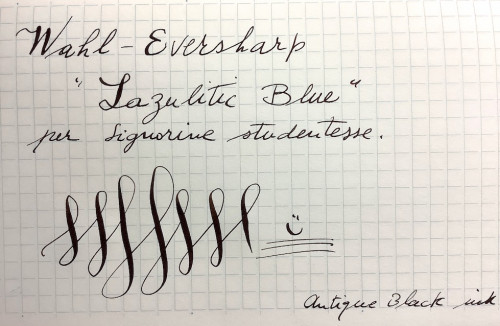 Wahl - Eversharp
"Lazulitic Blue"
per Signorine studentesse.
Antique Black ink